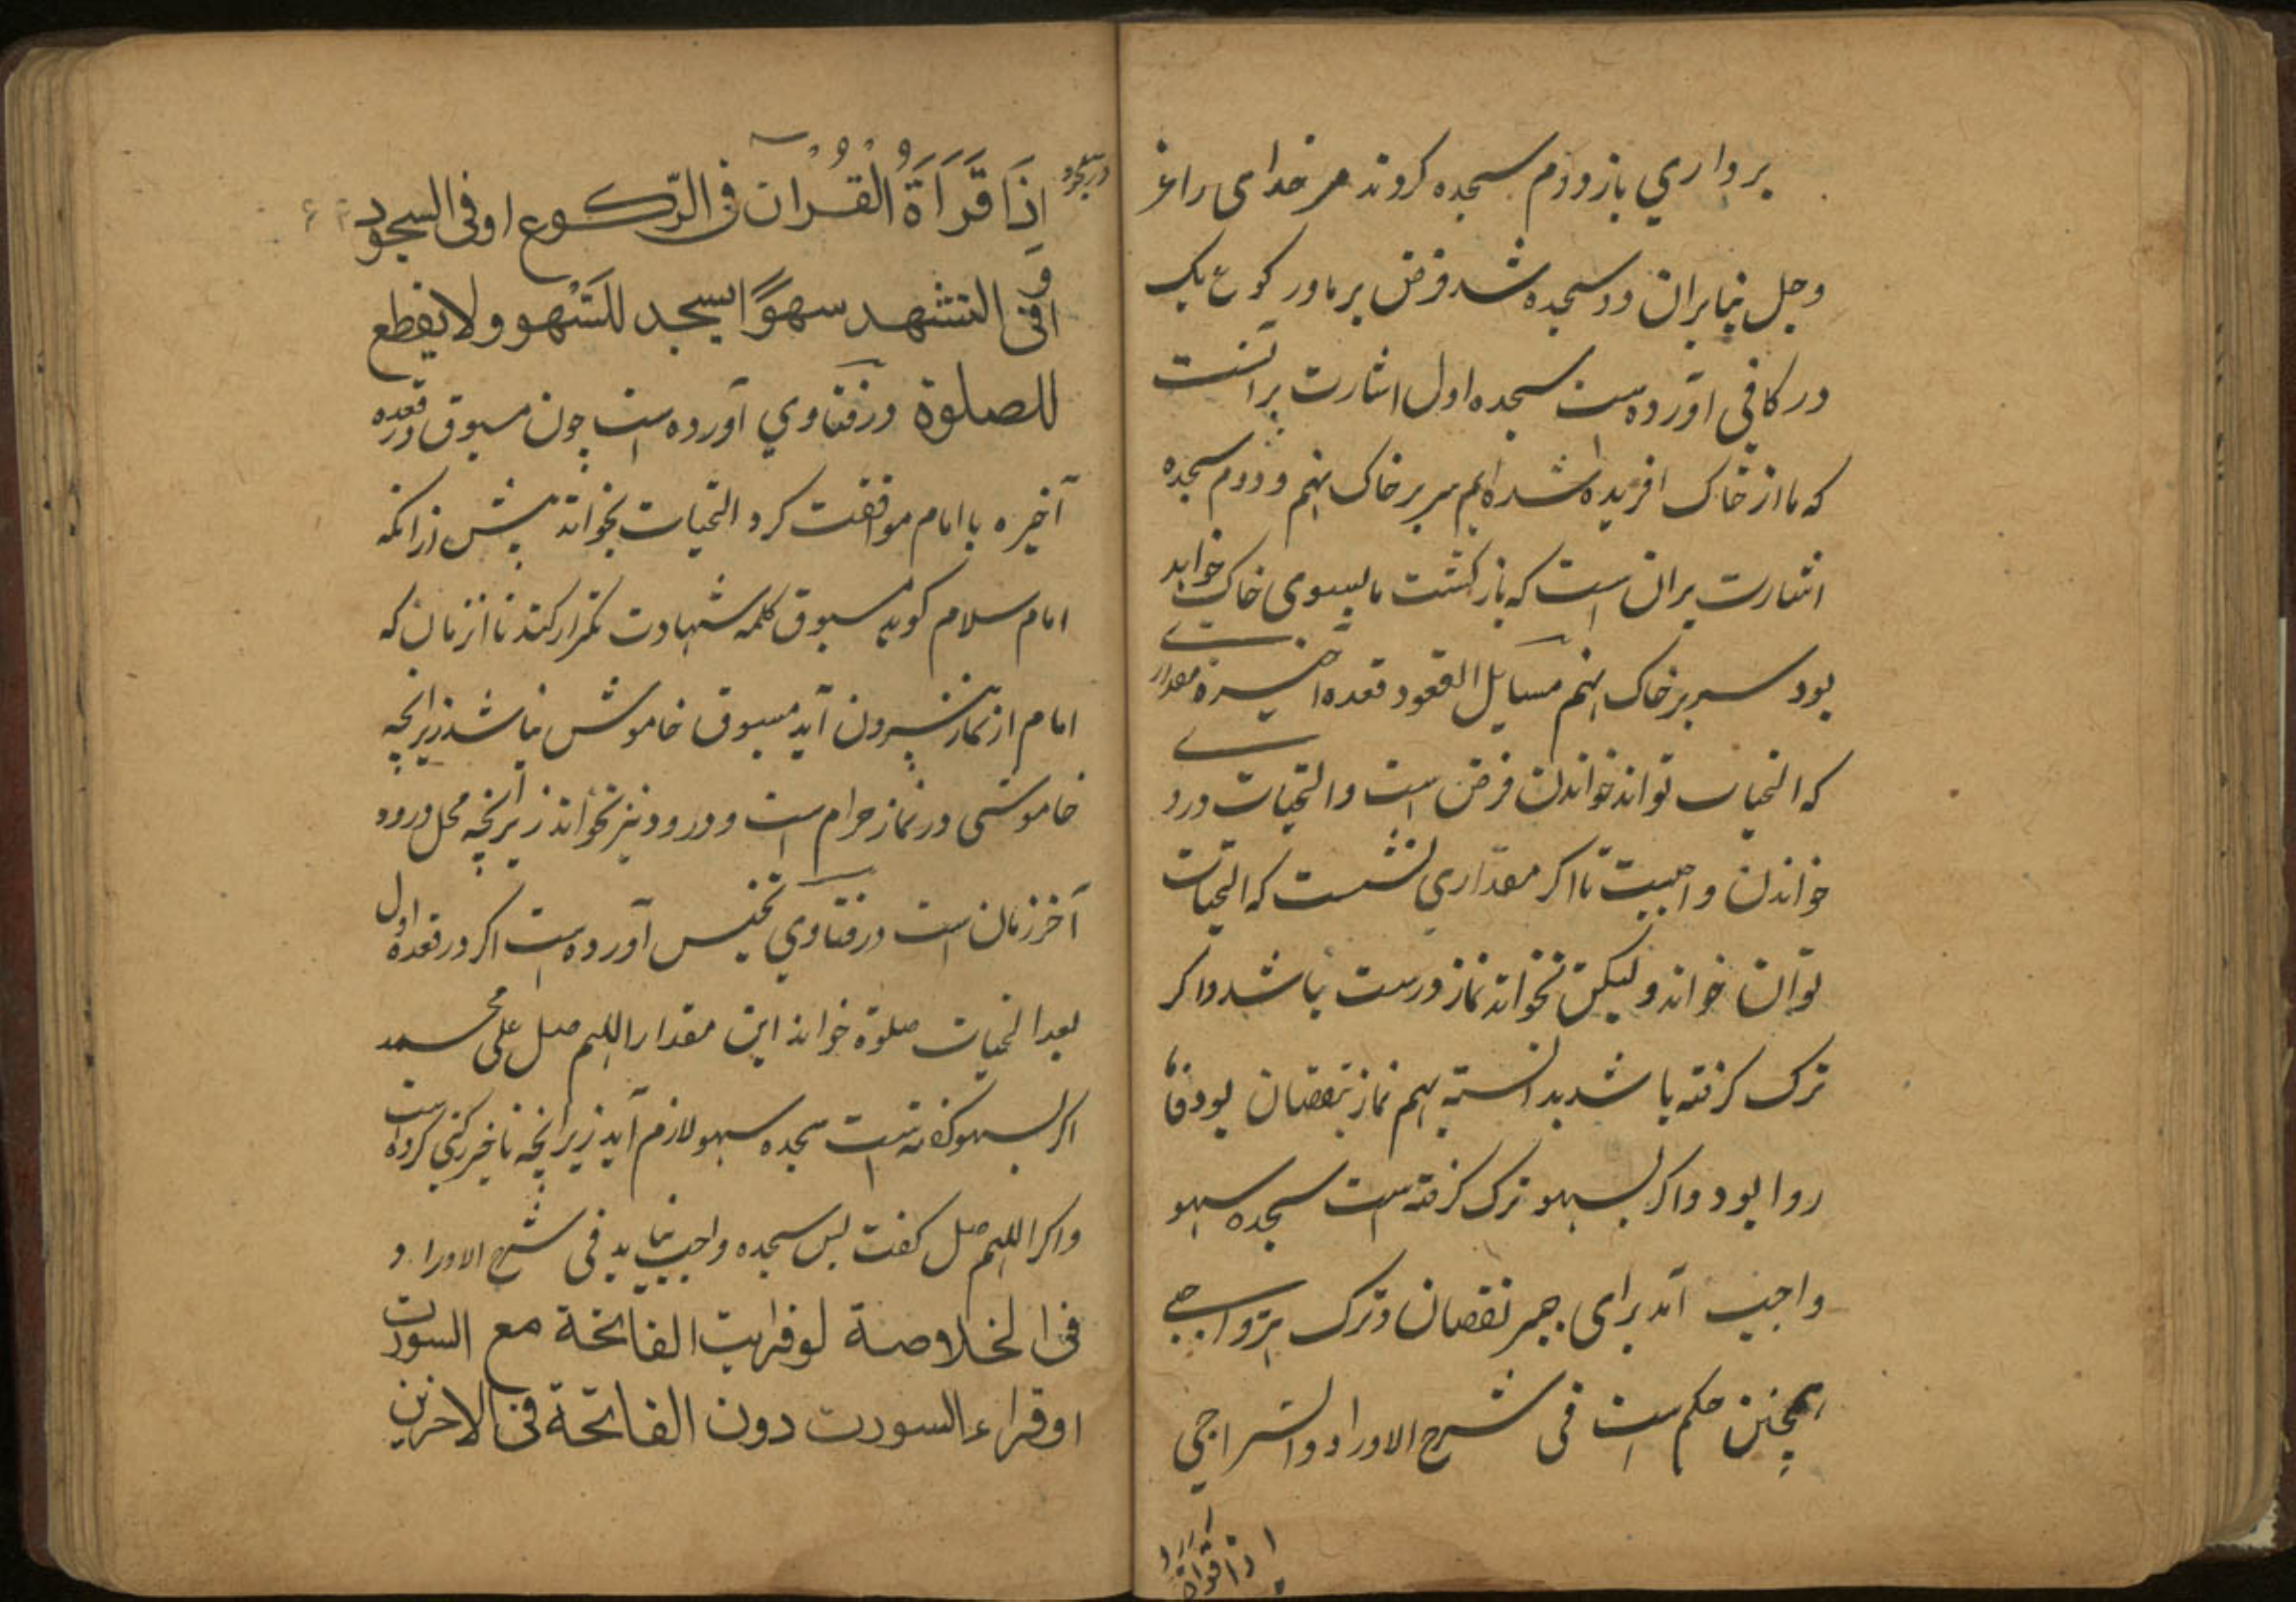 برداري باز دوم سجده کردند مر خدای را عز
وجل بنابران دو سجده شد فرض بر ما و رکوع یک
در کافی آورده است سجده اول اشارت برآنست
که ما از خاک افریده شده ایم سر بر خاک نهم و دوم سجده
اشارت بران است که باز کشت ما بسوی خاک خواهد
بود سر بر خاک نهم مسایل القعود قعده اخیره مقدار
که التحیات تواند خواندن فرض است والتحیات درو
خواندن واجبست تا اکر مقداري نشست که التحیات
توان خواند ولیکن نخواند نماز درست باشد واکر
ترک کرفته باشد بدانسته هم نماز بنقصان بود فاما
روا بود واکر بسهو ترک کرفته است سجده سهو
واجب آید برای جبر نقصان و ترک هر واجبی
همچنین حکم است فی شرح الاوراد والسراجی
اذا قراة
در تجرید
اِذَا قَرَاَةَ الْقُرْآن فی الرّکوع او فی السجود
او فی التشهد سهوًا یسجد للسَّهو ولا یقطع
للصلوة در فتاوي آورده است چون مسبوق در قعده
آخیره با امام موافقت کرد التحیات بخواند پیش ازانکه
امام سلام کوید مسبوق کلمه شهادت تکرار کند تا انزمان که
امام از نماز بیرون آید مسبوق خاموش نباشد زیرانچه
خاموشی در نماز حرام است و درود نیز نخواند زیرانچه محل درود
آخر زمان است در فتاوي تجنیس آورده است اکر در قعده اول
بعد التحیات صلوة خواند این مقدار اللهم صل علی محمد
اکر بسهو کفته است سجده سهو لازم آید زیرانچه تاخیر رکنی کرده است
واکر اللهم صل کفت پس سجده واجب نیاید فی شرح الاوراد
فی الخلاصة لو قرایت الفاتحة مع السورت
او قراء السورت دون الفاتحة فی الاخرین